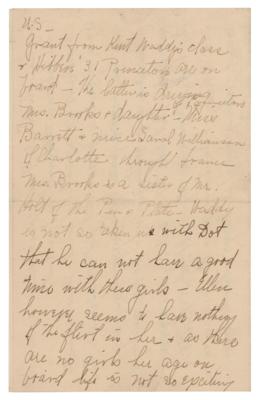 U.S—
Grant from Kent Waddy's class
& Hibben '31 Princeton are on
board — The latter is
Mrs. Brooks & daughter — Miss
Barrett & niece Sarah Williamson
of Charlotte through France
Mrs. Brooks is a sister of Mr.
Holt of the Pen & Plate — Waddy
is not so taken up with Dot
that he can not have a good
time with these girls — Ellen
however seems to have nothing
of the flirt in her & as there
are no girls her age on
board life is not so exciting